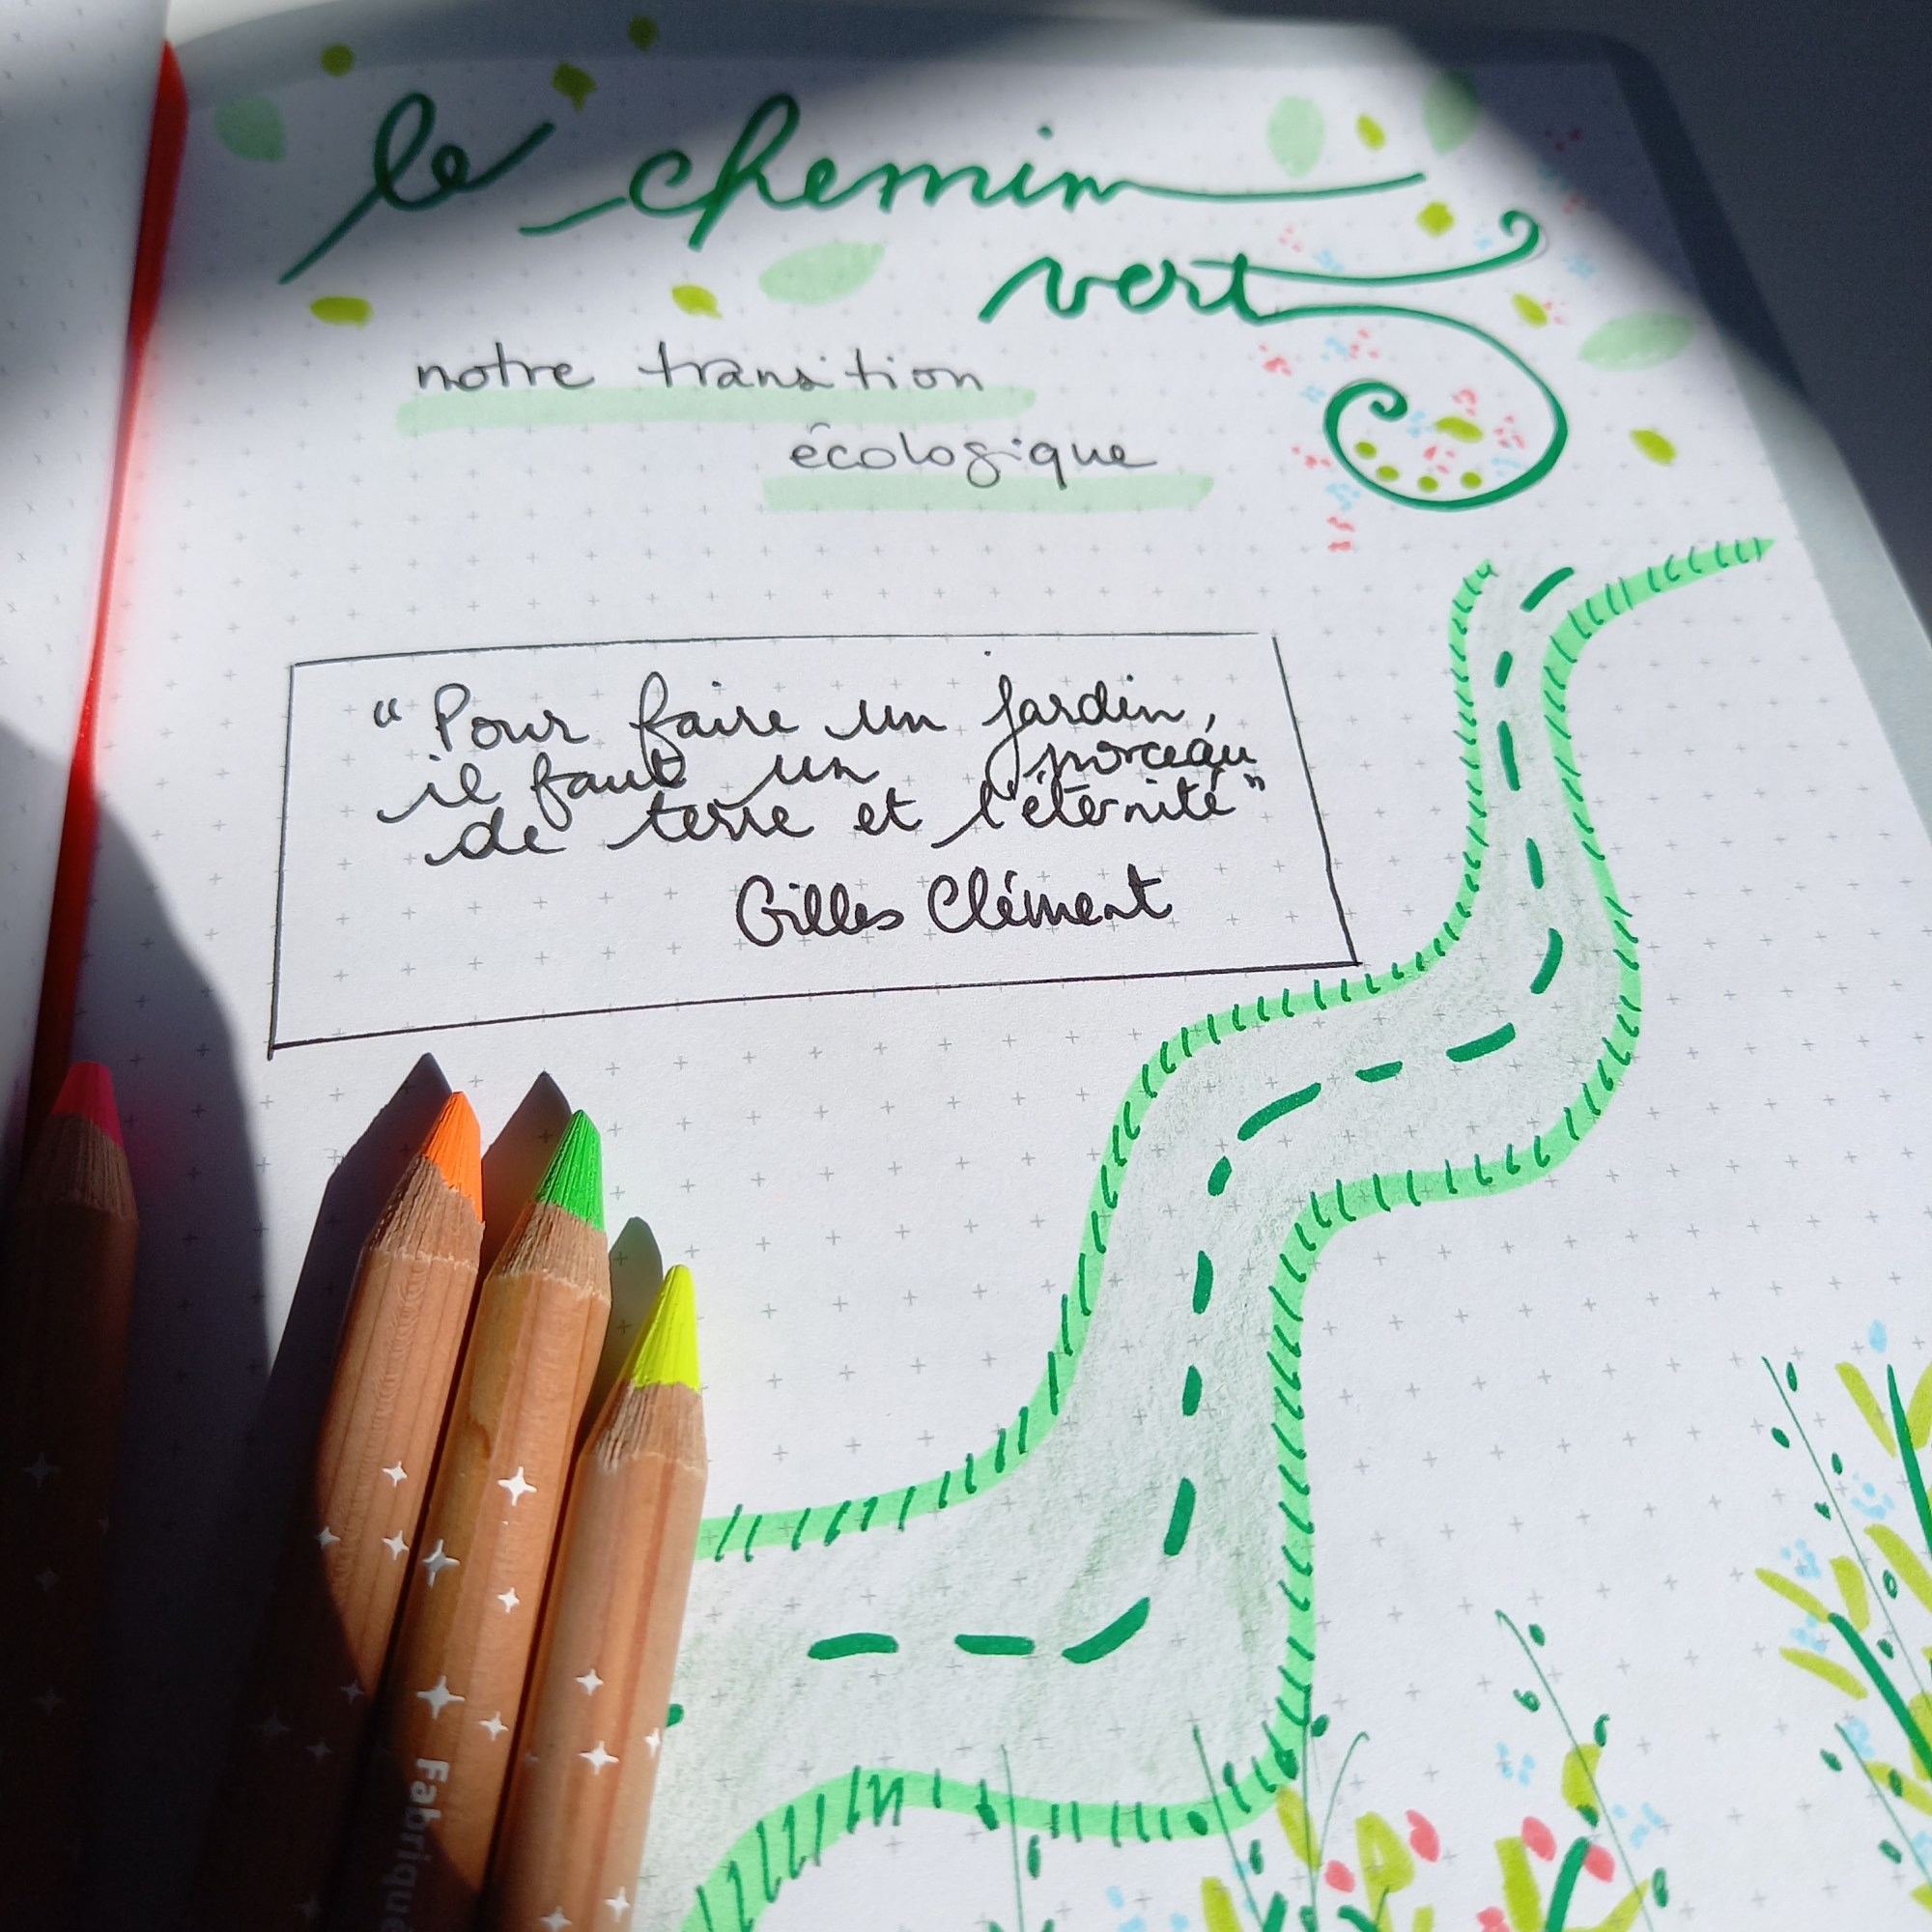 le chemin
vert
notre transition
écologique
“Pour faire un jardin,
il faut un morceau
de terre et l'éternité”
Gilles Clément
Fabriqué